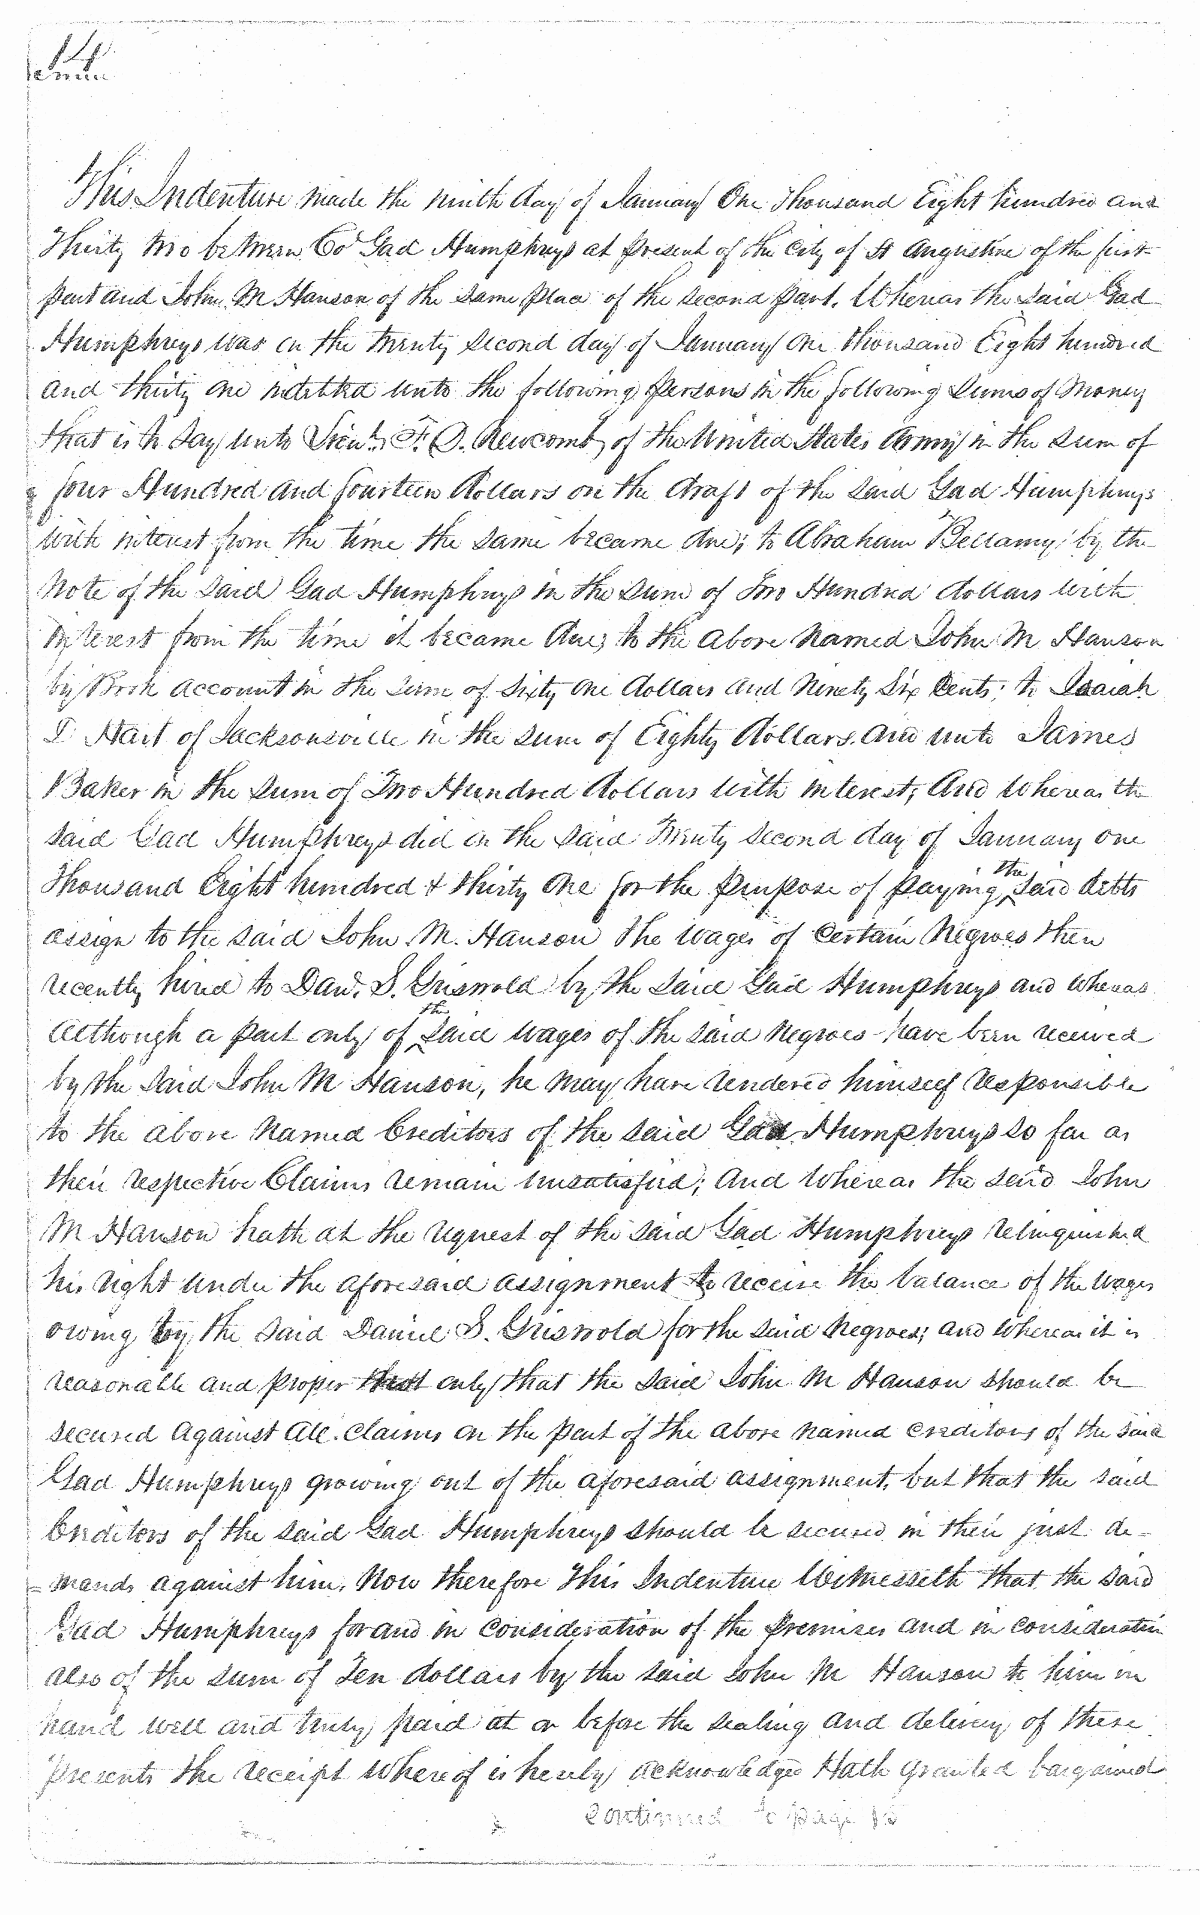 14
This Indenture made the ninth day of January One Thousand Eight hundred and
Thirty two between Col Gad Humphreys at present of the City of St Augustine of the first
part and John M Hanson of the same place of the second part. Whereas the said Gad
Humphreys was on the twenty second day of January one thousand Eight hundred
and thirty one indebted unto the following persons in the following sums of Money
that is to say unto Lieut. F. D. Newcomb, of the United States Army in the sum of
four Hundred and fourteen dollars on the draft of the said Gad Humphreys
with interest from the time the same became due; to Abraham Bellamy by the
Note of the said Gad Humphreys in the sum of Two Hundred dollars with
interest from the time it became due; to the above named John M Hanson
by Book account in the sum of sixty one dollars and Ninety Six Cents; to Isaiah
D. Hart of Jacksonsville in the sum of Eighty dollars. And unto James
Baker in the sum of Two Hundred dollars with interest; And Whereas the
said Gad Humphreys did on the said Twenty second day of January one
Thousand Eight hundred & thirty One for the purpose of paying the said debts
assign to the said John M. Hanson the wages of certain Negroes then
recently hired to Danl. S. Griswold by the said Gad Humphreys and whereas
Although a part only of the said wages of the said negroes have been received
by the said John M Hanson, he may have rendered himself responsible
to the above named Creditors of the said Gad Humphreys so far as
their respective Claims remain unsatisfied; And Whereas the said John
M Hanson hath at the request of the said Gad Humphreys relinquished
his right under the aforesaid assignment to receive the balance of the wages
owing by the said Daniel S. Griswold for the said Negroes; and whereas it is
reasonable and proper not only that the said John M Hanson should be
secured against all claims on the part of the above named creditors of the said
Gad Humphreys growing out of the aforesaid assignment, but that the said
Creditors of the said Gad Humphreys should be secured in their just de-
-mands against him. Now therefore This Indenture Witnesseth that the said
Gad Humphreys for and in consideration of the premises and in consideration
also of the sum of Ten dollars by the said John M Hanson to him in
hand well and truly paid at or before the sealing and delivery of these
presents the receipt whereof is hereby acknowledged Hath granted bargained
Continued to page 15